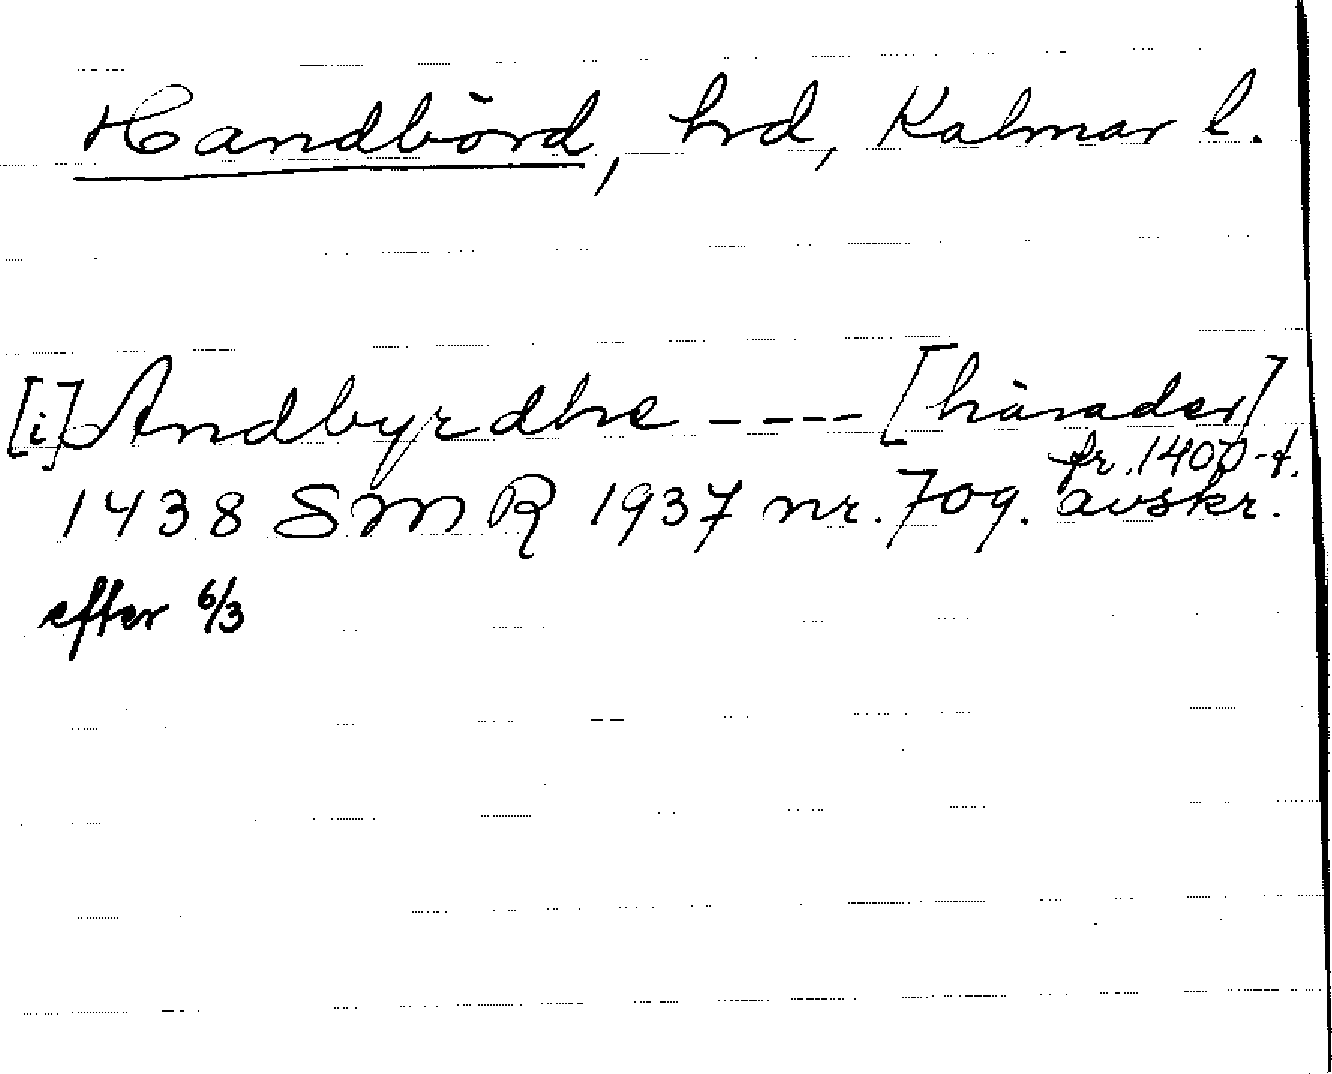 Handbörd, hrd, Kalmar l.
[i] Andbyrdhe ---- [härader]
fr. 1400-t.
1438 SMR 1937 nr. 709. avskr.
efter 6/3